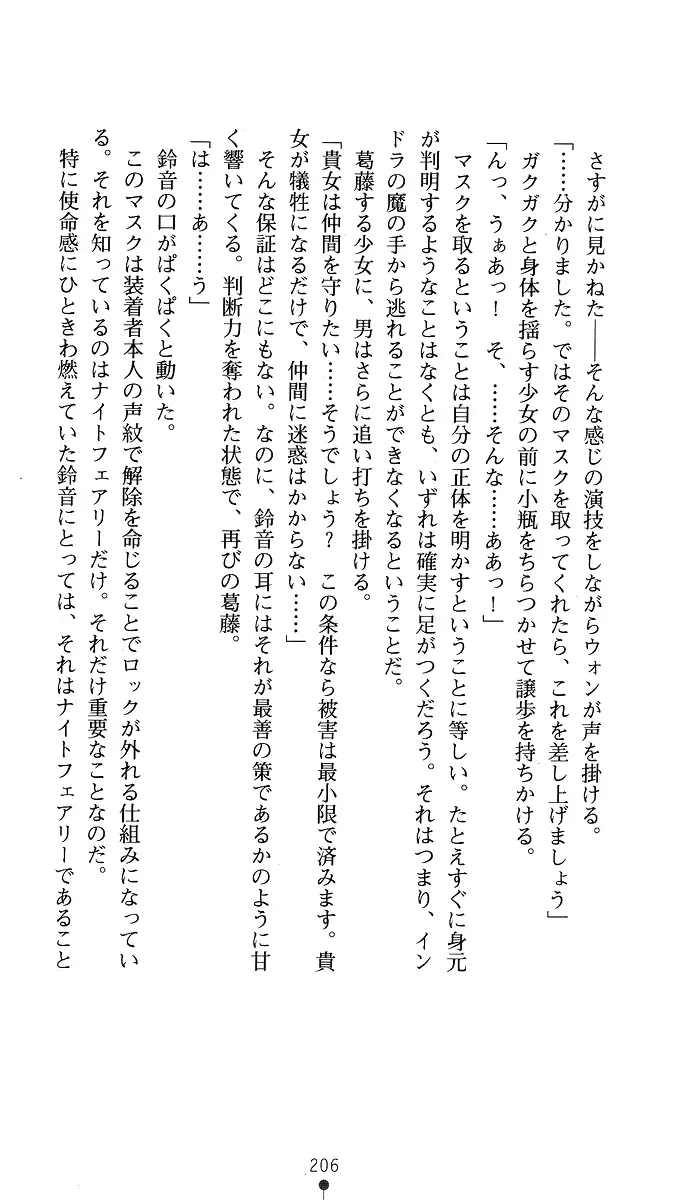 さすがに見かねた――そんな感じの演技をしながらウォンが声を掛ける。
「……分かりました。ではそのマスクを取ってくれたら、これを差し上げましょう」
ガクガクと身体を揺らす少女の前に小瓶をちらつかせて譲歩を持ちかける。
「んっ、うぁあっ！　そ、……そんな……ああっ！」
マスクを取るということは自分の正体を明かすということに等しい。たとえすぐに身元
が判明するようなことはなくとも、いずれは確実に足がつくだろう。それはつまり、イン
ドラの魔の手から逃れることができなくなるということだ。
葛藤する少女に、男はさらに追い打ちを掛ける。
「貴女は仲間を守りたい……そうでしょう？　この条件なら被害は最小限で済みます。貴
女が犠牲になるだけで、仲間に迷惑はかからない……」
そんな保証はどこにもない。なのに、鈴音の耳にはそれが最善の策であるかのように甘
く響いてくる。判断力を奪われた状態で、再びの葛藤。
「は……ぁ……う」
鈴音の口がぱくぱくと動いた。
このマスクは装着者本人の声紋で解除を命じることでロックが外れる仕組みになってい
る。それを知っているのはナイトフェアリーだけ。それだけ重要なことなのだ。
特に使命感にひときわ燃えていた鈴音にとっては、それはナイトフェアリーであること
206